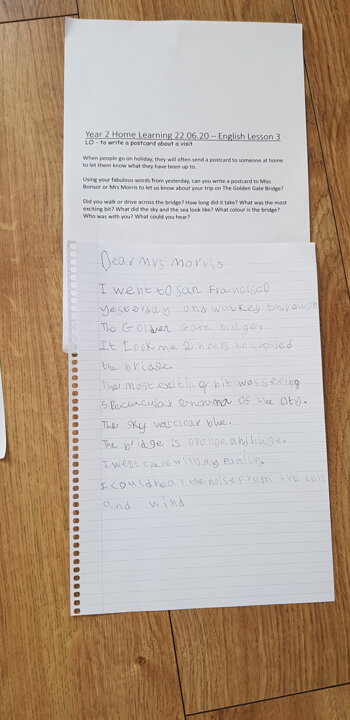 Year 2 Home Learning 22.06.20 – English Lesson 3
LO - to write a postcard about a visit
When people go on holiday, they will often send a postcard to someone at home
to let them know what they have been up to.
Using your fabulous words from yesterday, can you write a postcard to Miss
Bonsor or Mrs Morris to let us know about your trip on The Golden Gate Bridge?
Did you walk or drive across the bridge? How long did it take? What was the most
exciting bit? What did the sky and the sea look like? What colour is the bridge?
Who was with you? What could you hear?
Dear Mrs Morris
I went to San Francisco
yesterday and walked through
The Golden Gate bridge.
It took me 2 hours to crossed
the bridge.
The most exciting bit was seeing
spectacular panorama of the city.
The sky was clear blue.
The bridge is orange and huge.
I went there with my family.
I could hear the noise from the cars
and wind